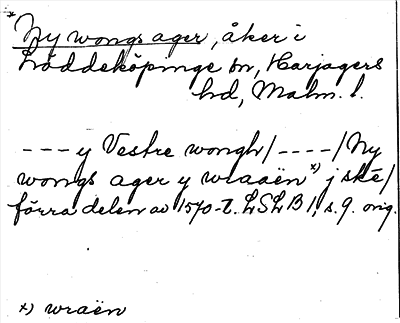 * Ny wongs ager, åker i
Löddeköpinge sn, Harjagers
hd, Malm. l.
--- y Vestre wongh/ ----/ Ny
wongs ager y wraaën x) j skē/
förra delen av 1570-t. LSLB 1, s. 9. orig.
x) wraën